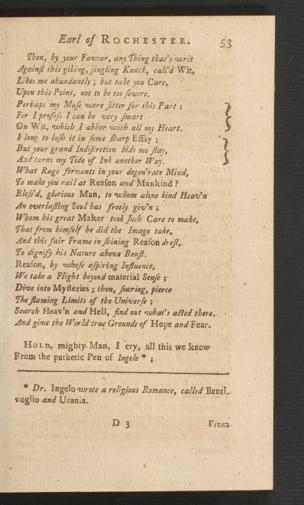 Earl of ROCHESTER. 53
Then, by your Favour, any Thing that's writ
Against this gibing, jingling Knack, call'd Wit,
Likes me abundantly; but take you Care,
Upon this Point, not to be too severe.
Perhaps my Muse were fitter for this Part;
For I profess I can be very smart
On Wit, which I abhor with all my Heart.
I long to lash it in some sharp Essay;
But your grand Indiscretion bids me stay,
And turns my Tide of Ink another Way.
What Rage ferments in your degen'rate Mind,
To make you rail at Reason and Mankind?
Bless'd, glorious Man, to whom alone kind Heav'n
An everlasting Soul has freely giv'n;
Whom his great Maker took such Care to make,
That from himself he did the Image take,
And this fair Frame in shining Reason drest,
To dignify his Nature above Beast.
Reason, by whose aspiring Influence,
We take a Flight beyond material Sense;
Dive into Mysteries; then, soaring, pierce
The flaming Limits of the Universe;
Search Heav'n and Hell, find out what's acted there.
And give the World true Grounds of Hope and Fear.
HOLD, mighty Man, I cry, all this we know
From the pathetic Pen of Ingelo *;
* Dr. Ingelo wrote a religious Romance, called Benti-
voglio and Urania.
D 3 From